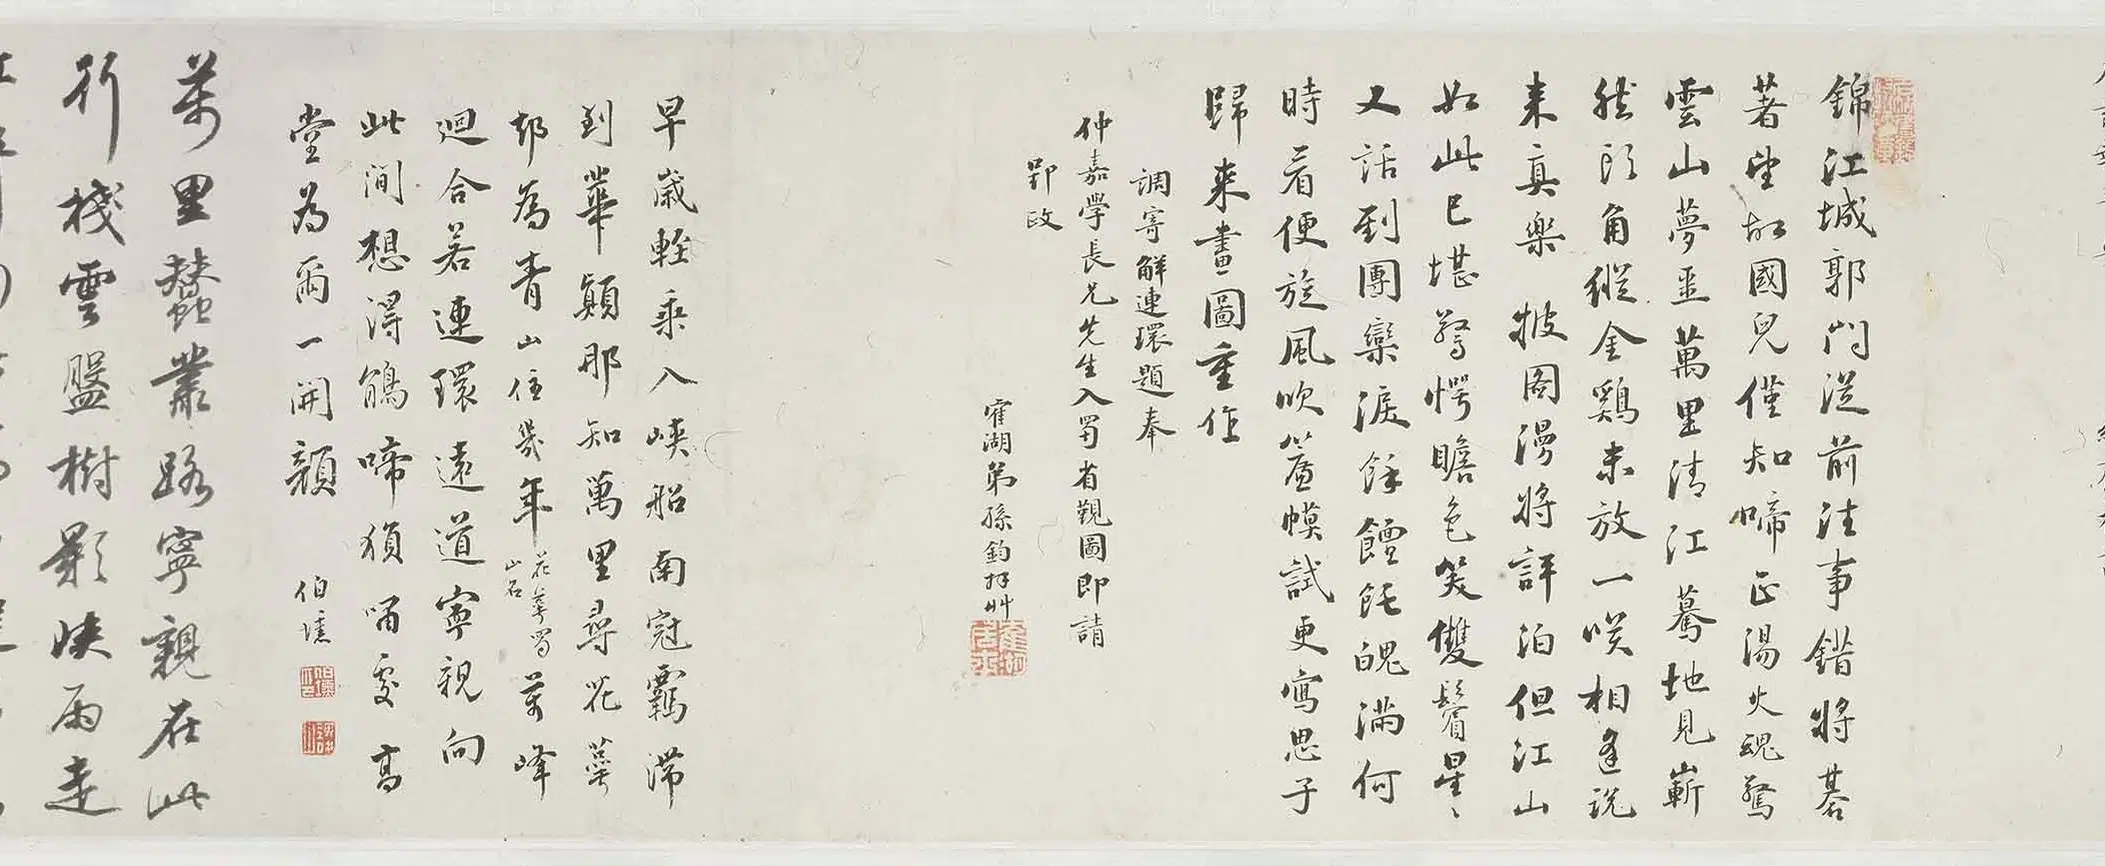 錦江城郭門從前往事錯將碁
著望故國兒僅知啼正湯火魂驚
雲山夢亜萬里清江驀地見嶄
然頭角縱金鷄未放一咲相逢說
来真樂披圖漫將評泊但江山
如此已堪驚愕瞻色笑雙鬢星〻
又話到團欒淚餘饘飥醜滿何
時看便旋風吹簾幙試更寫思子
歸来畫圖重作
調寄解連環題奉
仲嘉學長兄先生入蜀省覲圖即請
郢政
寉湖弟孫鈞拜艸
早歳輕乘入峽船南冠羈滯
到華顛那知萬里尋花萼
却為青山住幾年
花萼蜀
山名
萬峰
迴合若連環遠道寧親向
此間想得鵑啼猿嘯處高
堂為爾一開顏
伯熹
萬里蠶叢路寧親在此
行棧雲盤樹影峽雨走